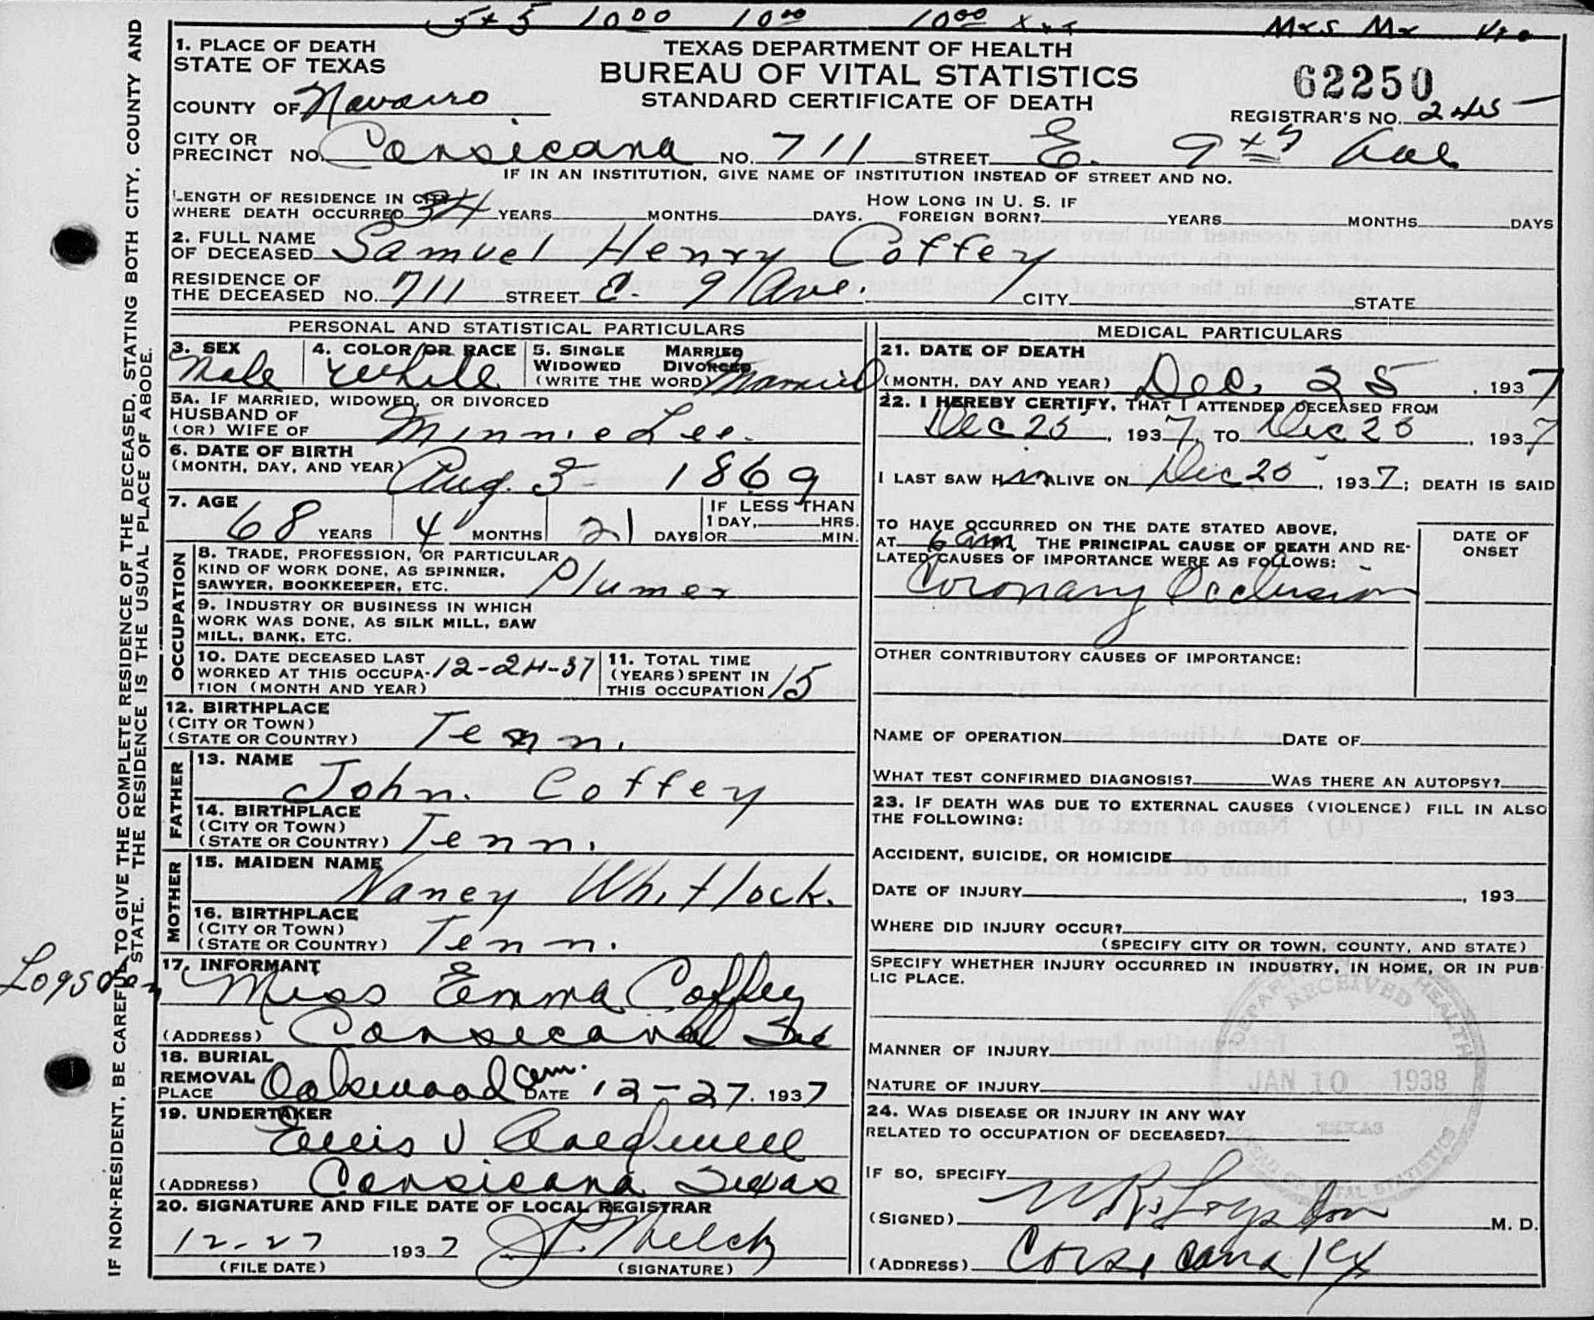 5x5 10 00 10 00 10 00 Mrs Mr
1. PLACE OF DEATH
STATE OF TEXAS
COUNTY OF Navarro
TEXAS DEPARTMENT OF HEALTH
BUREAU OF VITAL STATISTICS
STANDARD CERTIFICATE OF DEATH
62250
REGISTRAR'S NO. 245
CITY OR PRECINCT NO. Corsicana NO. 711 STREET E. 9th Ave
IF IN AN INSTITUTION, GIVE NAME OF INSTITUTION INSTEAD OF STREET AND NO.
LENGTH OF RESIDENCE IN CITY WHERE DEATH OCCURRED 34 YEARS MONTHS DAYS. HOW LONG IN U. S. IF FOREIGN BORN? YEARS MONTHS DAYS
2. FULL NAME OF DECEASED Samuel Henry Coffey
RESIDENCE OF THE DECEASED NO. 711 STREET E. 9 Ave. CITY STATE
PERSONAL AND STATISTICAL PARTICULARS
3. SEX Male
4. COLOR OR RACE White
5. SINGLE MARRIED WIDOWED DIVORCED (WRITE THE WORD) Married
5A. IF MARRIED, WIDOWED, OR DIVORCED
HUSBAND OF (OR) WIFE OF Minnie Lee.
6. DATE OF BIRTH (MONTH, DAY, AND YEAR) Aug. 3 - 1869
7. AGE 68 YEARS 4 MONTHS 21 DAYS IF LESS THAN 1 DAY, HRS. OR MIN.
OCCUPATION
8. TRADE, PROFESSION, OR PARTICULAR
KIND OF WORK DONE, AS SPINNER,
SAWYER, BOOKKEEPER, ETC. Plumer
9. INDUSTRY OR BUSINESS IN WHICH
WORK WAS DONE, AS SILK MILL, SAW
MILL, BANK, ETC.
10. DATE DECEASED LAST WORKED AT THIS OCCUPATION (MONTH AND YEAR) 12-24-37
11. TOTAL TIME (YEARS) SPENT IN THIS OCCUPATION 15
12. BIRTHPLACE
(CITY OR TOWN)
(STATE OR COUNTRY) Tenn.
FATHER
13. NAME John. Coffey
14. BIRTHPLACE
(CITY OR TOWN)
(STATE OR COUNTRY) Tenn.
MOTHER
15. MAIDEN NAME Nancy Whitlock.
16. BIRTHPLACE
(CITY OR TOWN)
(STATE OR COUNTRY) Tenn.
17. INFORMANT Miss Emma Coffey
(ADDRESS) Corsicana Tex
18. BURIAL REMOVAL
PLACE Oakwood Cem. DATE 12-27. 1937
19. UNDERTAKER
(ADDRESS) Corsicana Texas
20. SIGNATURE AND FILE DATE OF LOCAL REGISTRAR
12-27 1937 J.P. Welch
(FILE DATE) (SIGNATURE)
MEDICAL PARTICULARS
21. DATE OF DEATH
(MONTH, DAY AND YEAR) Dec. 25, 1937
22. I HEREBY CERTIFY, THAT I ATTENDED DECEASED FROM
Dec 25, 1937, TO Dec 25, 1937
I LAST SAW HIM ALIVE ON Dec 25, 1937; DEATH IS SAID
TO HAVE OCCURRED ON THE DATE STATED ABOVE,
AT 6 am THE PRINCIPAL CAUSE OF DEATH AND RE-
LATED CAUSES OF IMPORTANCE WERE AS FOLLOWS:
DATE OF ONSET
Coronary Occlusion
OTHER CONTRIBUTORY CAUSES OF IMPORTANCE:
NAME OF OPERATION DATE OF
WHAT TEST CONFIRMED DIAGNOSIS? WAS THERE AN AUTOPSY?
23. IF DEATH WAS DUE TO EXTERNAL CAUSES (VIOLENCE) FILL IN ALSO
THE FOLLOWING:
ACCIDENT, SUICIDE, OR HOMICIDE
DATE OF INJURY , 193
WHERE DID INJURY OCCUR?
(SPECIFY CITY OR TOWN, COUNTY, AND STATE)
SPECIFY WHETHER INJURY OCCURRED IN INDUSTRY, IN HOME, OR IN PUB-
LIC PLACE.
MANNER OF INJURY
NATURE OF INJURY
24. WAS DISEASE OR INJURY IN ANY WAY
RELATED TO OCCUPATION OF DECEASED?
IF SO, SPECIFY
(SIGNED) W R Logsdon M. D.
(ADDRESS) Corsicana Tx
DEPARTMENT OF HEALTH
RECEIVED
JAN 10 1938
TEXAS
BUREAU OF VITAL STATISTICS
Logsdon
IF NON-RESIDENT, BE CAREFUL TO GIVE THE COMPLETE RESIDENCE OF THE DECEASED, STATING BOTH CITY, COUNTY AND
STATE. THE RESIDENCE IS THE USUAL PLACE OF ABODE.